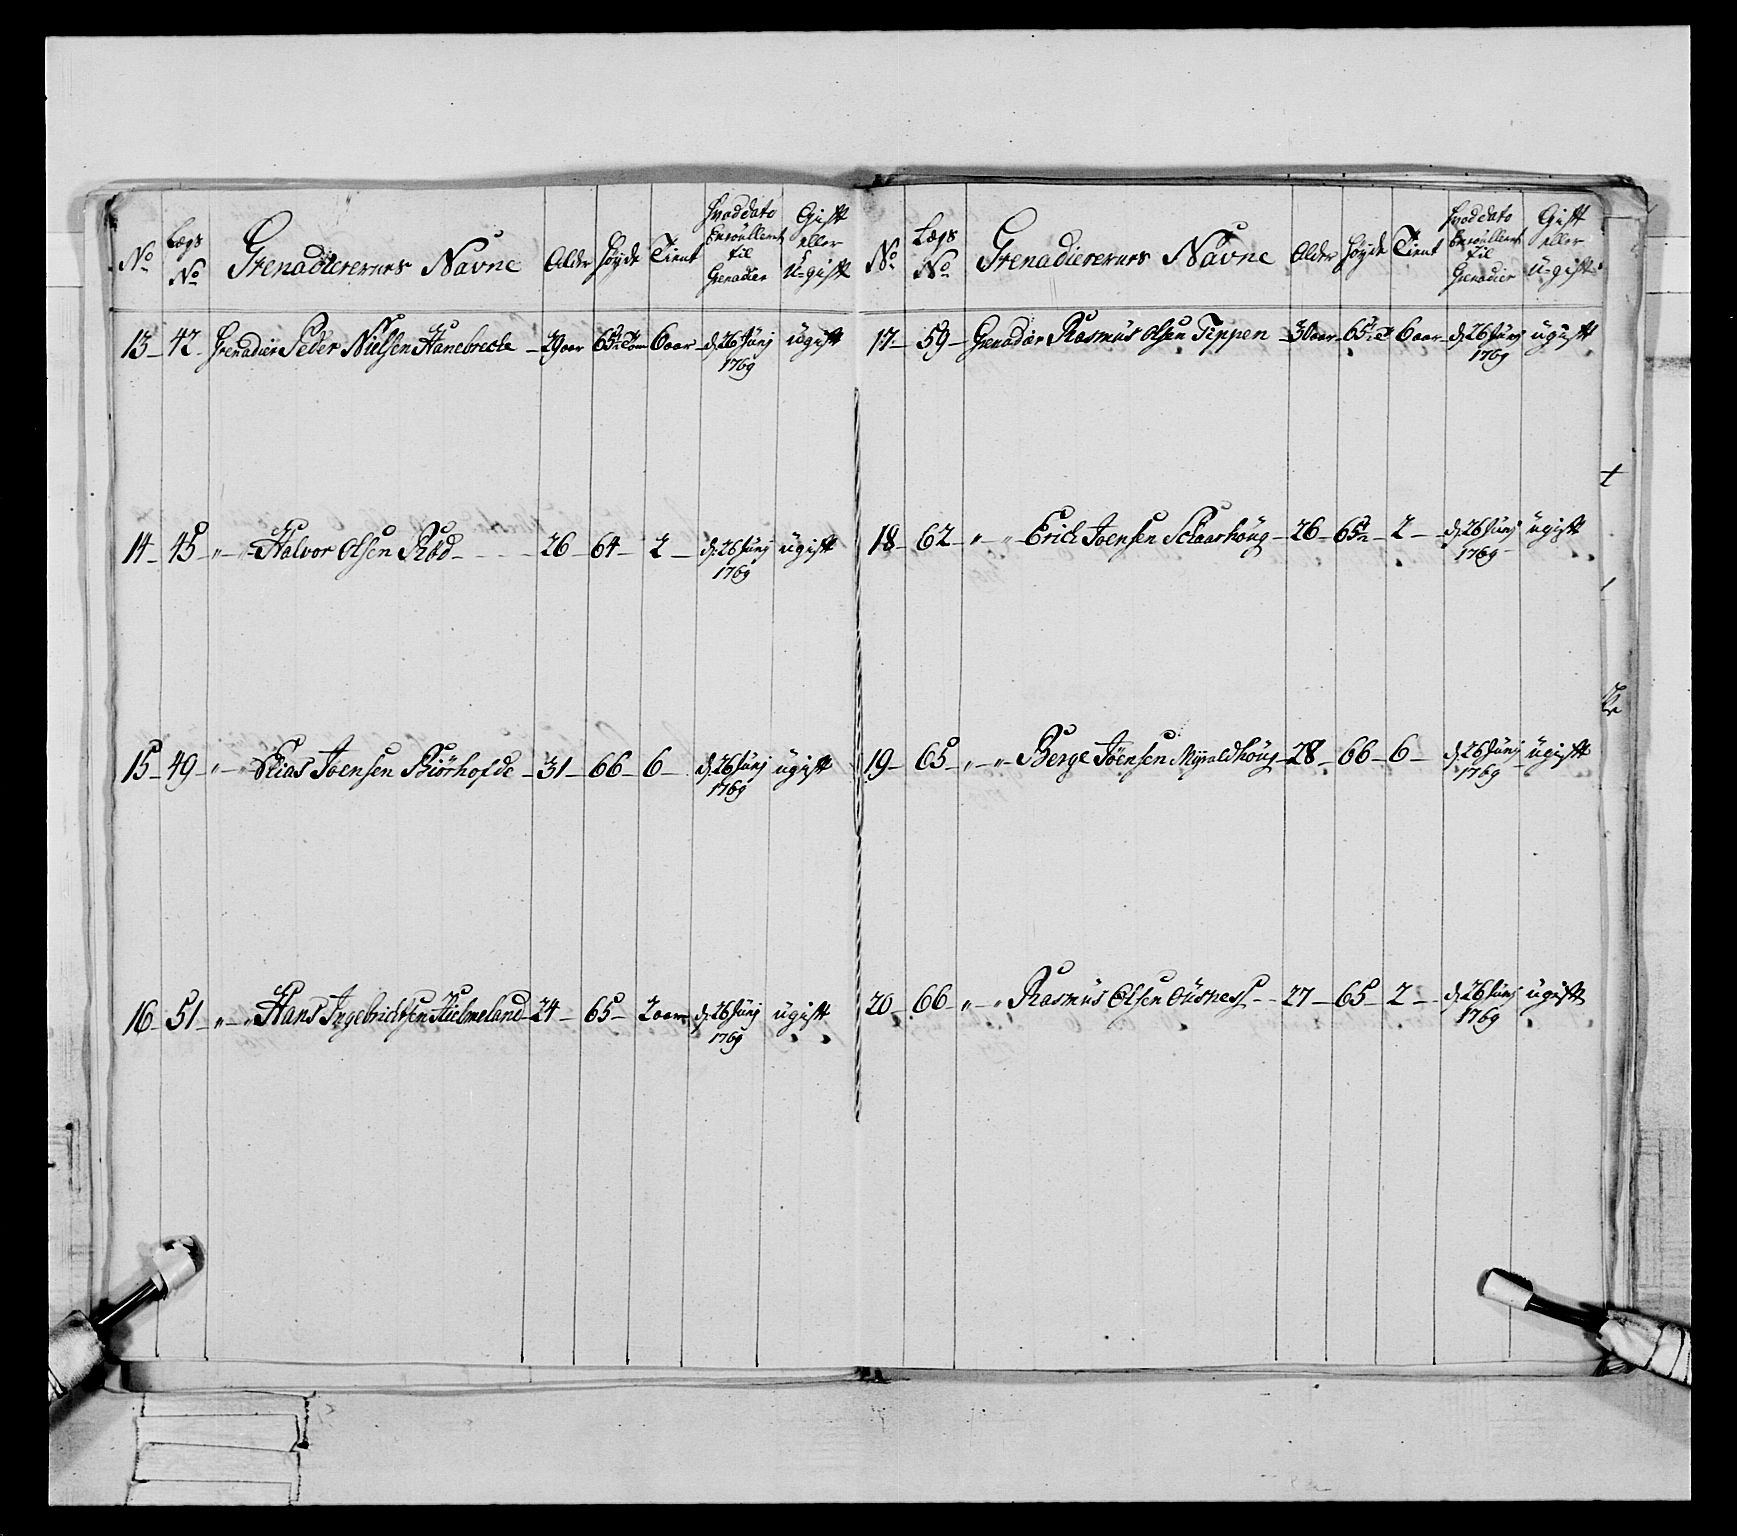 No Lægs No Grenadierernes Navne Alder høyde Tient hvad dato Enroullert til Grenadeer Gift eller U-gift
13 – 42 – Grenadeer Peder Nielsen Hanebrecke – 29 aar – 65 ½ Tom 6 aar – d. 26 Junj 1769 ugift
14 – 45 – " – " – Halvor Olsen Rød – 26 – 64 – 2 – d. 26 Junj 1769 ugift
15 – 49 – " – " – Elias Joensen Biørhofde – 31 – 66 – 6 – d. 26 Junj 1769 ugift
16 – 51 – " – " – Hans Ingebrichtsen Hielmeland – 24 – 65 – 2 aar d. 26 Junj 1769 ugift
No Lægs No Grenadierernes Navne Alder høyde Tient hvad dato Enroullert til Grenadier Gift eller U-gift
17 – 59 – Grenadeer Rasmus Olsen Tippen – 30 aar – 65 ½ T 6 aar – d. 26 Junj 1769 ugift
18 – 62 – " – " – Erich Joensen Schaarhoug – 26 – 65 ½ – 2 – d. 26 Junj 1769 ugift
19 – 65 – " – " – Berge Joensen Myrvaldhoug – 28 – 66 – 6 – d. 26 Junj 1769 – ugift
20 – 66 – " – " Rasmus Olsen Ousness – 27 – 65 – 2 – d. 26 Junj 1769 ugift